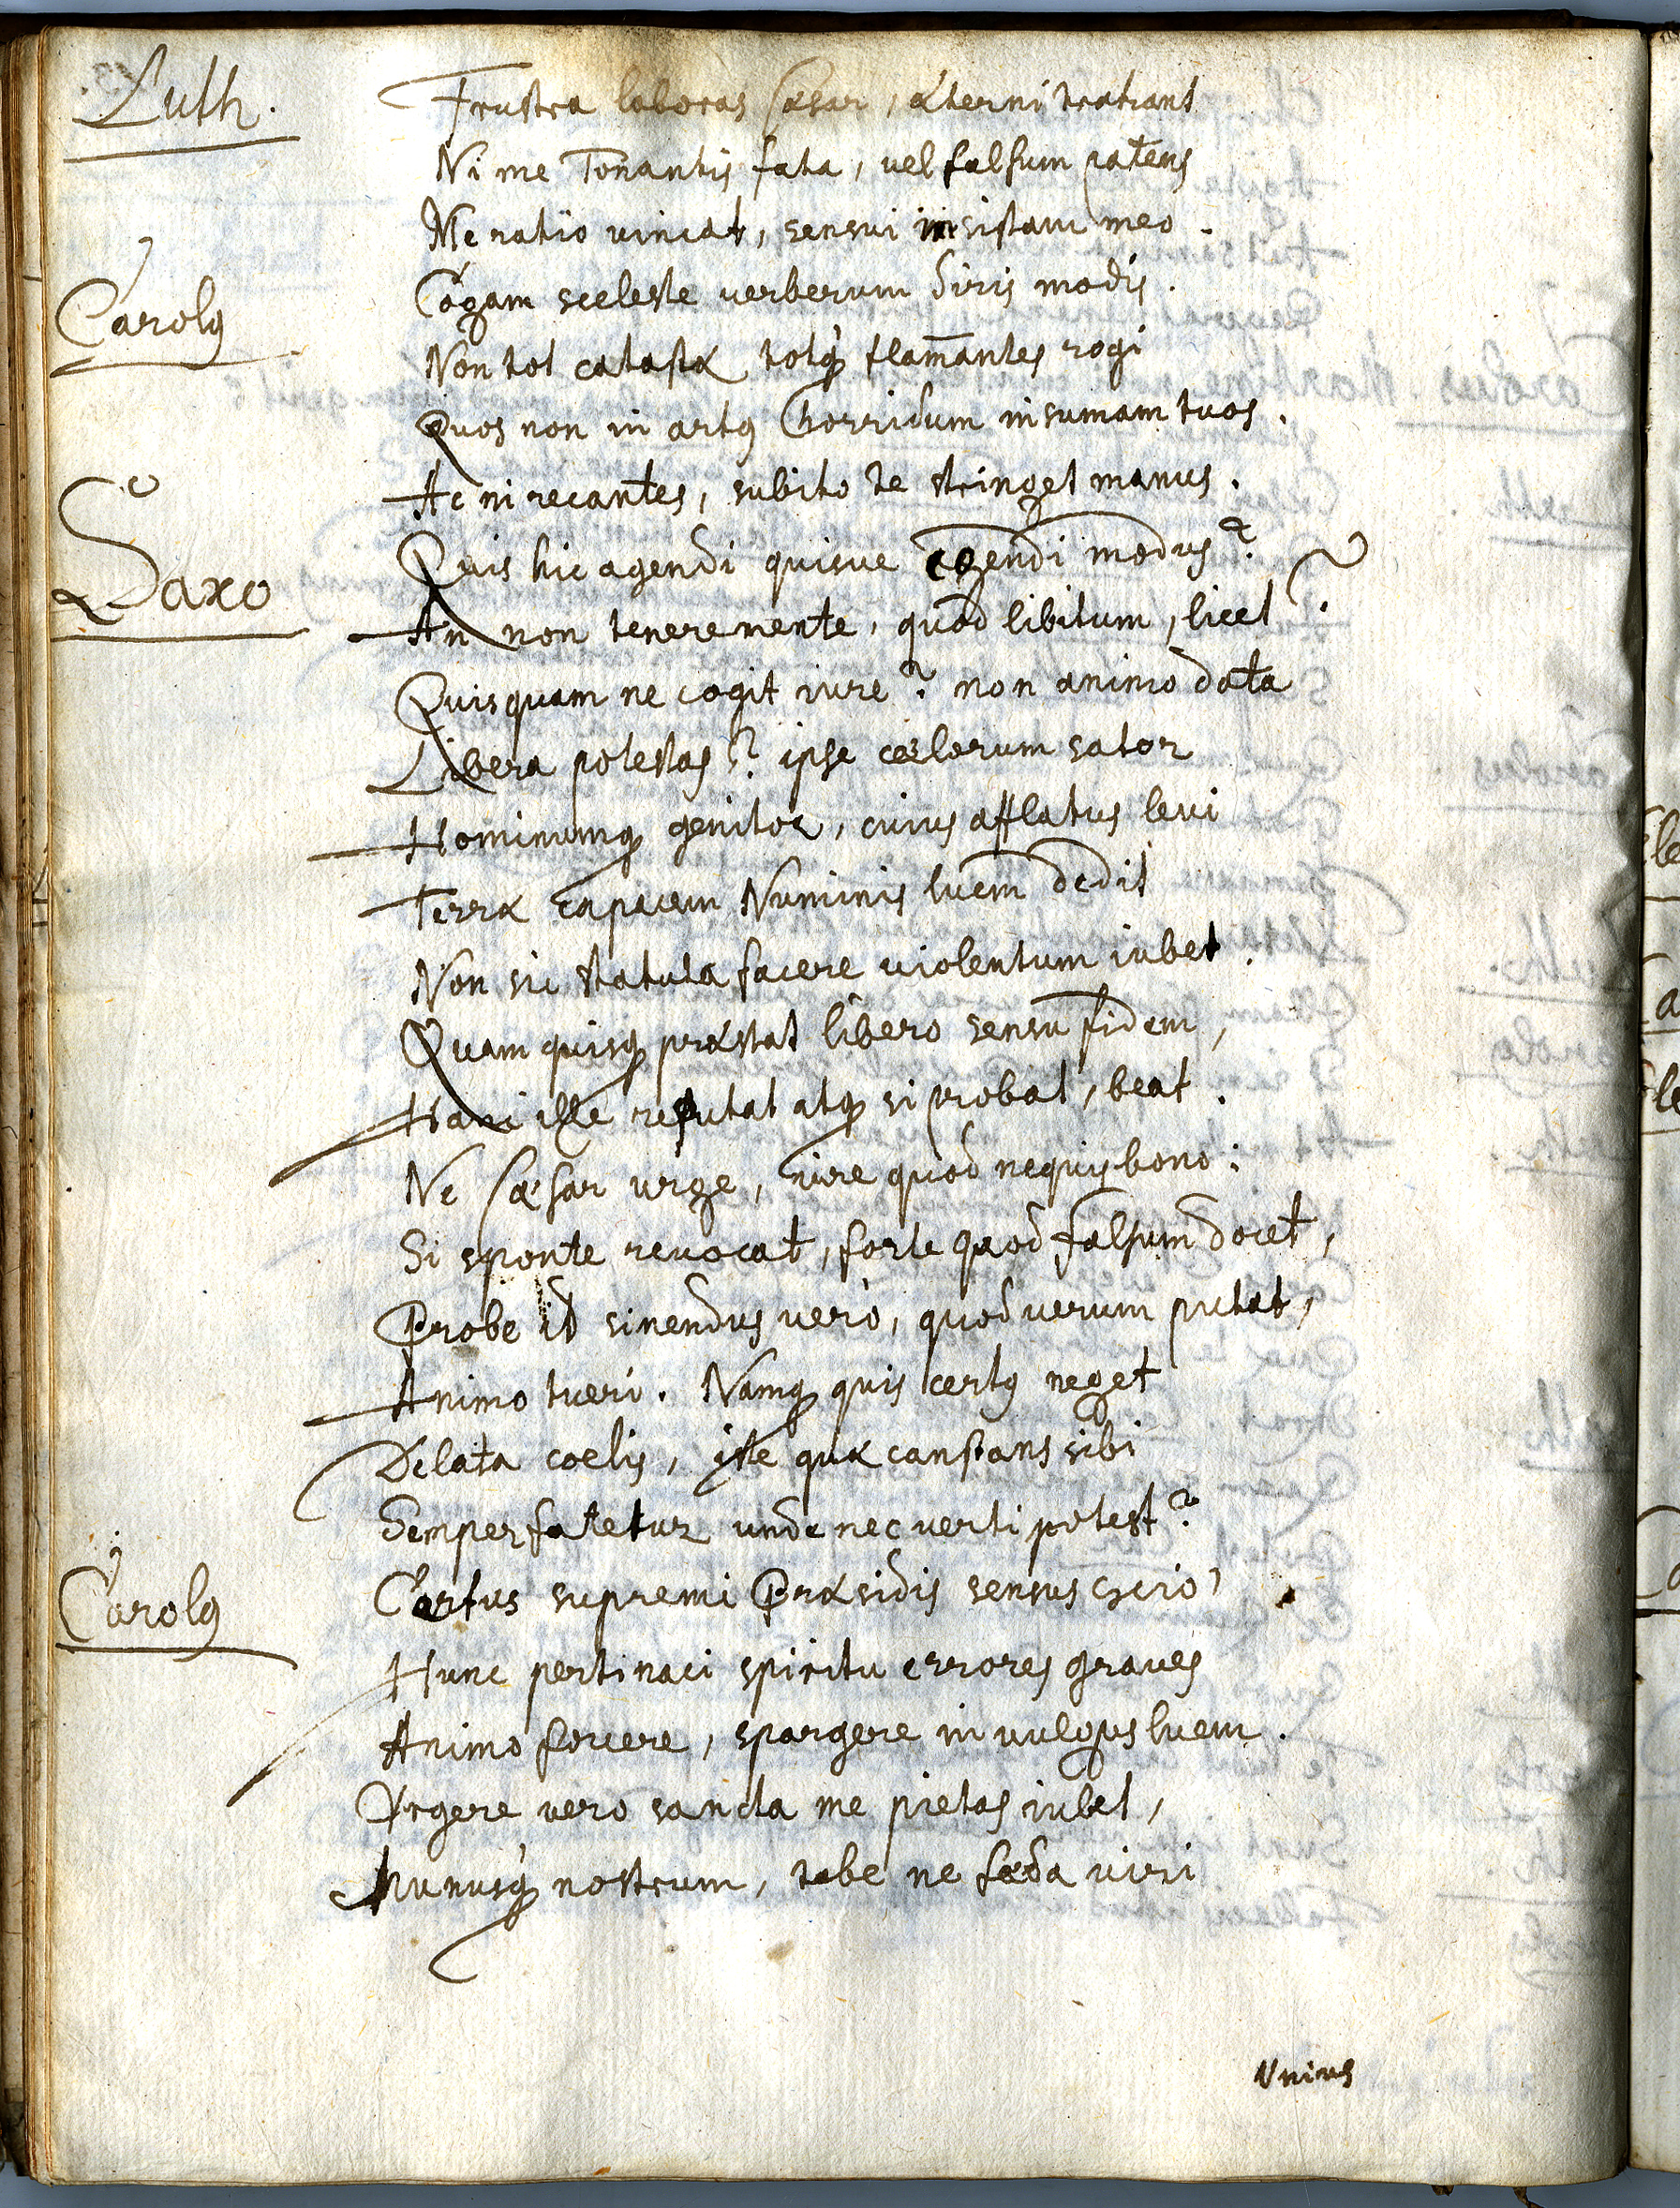 Luth. Frustra laboras Cæsar, æterni trahant
Ni me Tonantis fata, vel falsum patens
Me ratio vincat, sensui insistam meo.
Carolꝰ Cogam sceleste verberum diris modis.
Non tot catastæ totqꝫ flam̄antes rogi
Quos non in artꝰ horridum insumam tuos.
Ac ni recantes, subito te stringet manus.
Saxo Quis hic agendi quisve cogendi modus?
An non tenere mente, quod libitum, licet?
Quisquam ne cogit iure? non animo data
Libera potestas? ipse cœlorum sator
Hominumqꝫ genitor, cuius afflatus levi
Terræ capacem Numinis luem dedit
Non sic statuta facere violentum iubet.
Quam quisqꝫ præstat libero sensu fidem,
Hanc ille reputat atqꝫ si probat, beat.
Ne Cæsar urge, iure quod nequis bono:
Si sponte revocat, forte quod falsum docet,
Probe id sinendus verò, quod verum putat,
Animo tueri. Namqꝫ quis certꝰ neget
Delata coelis, iste quæ constans sibi
Semper fatetur unde nec verti potest?
Carolꝰ Certus supremi Præsidis sensus scio
Hunc pertinaci spiritu errores graues
Animo fovere, spargere in vulgus luem.
Urgere vero sancta me pietas iubet,
Munusqꝫ nostrum, tabe ne fœda viri
Unius